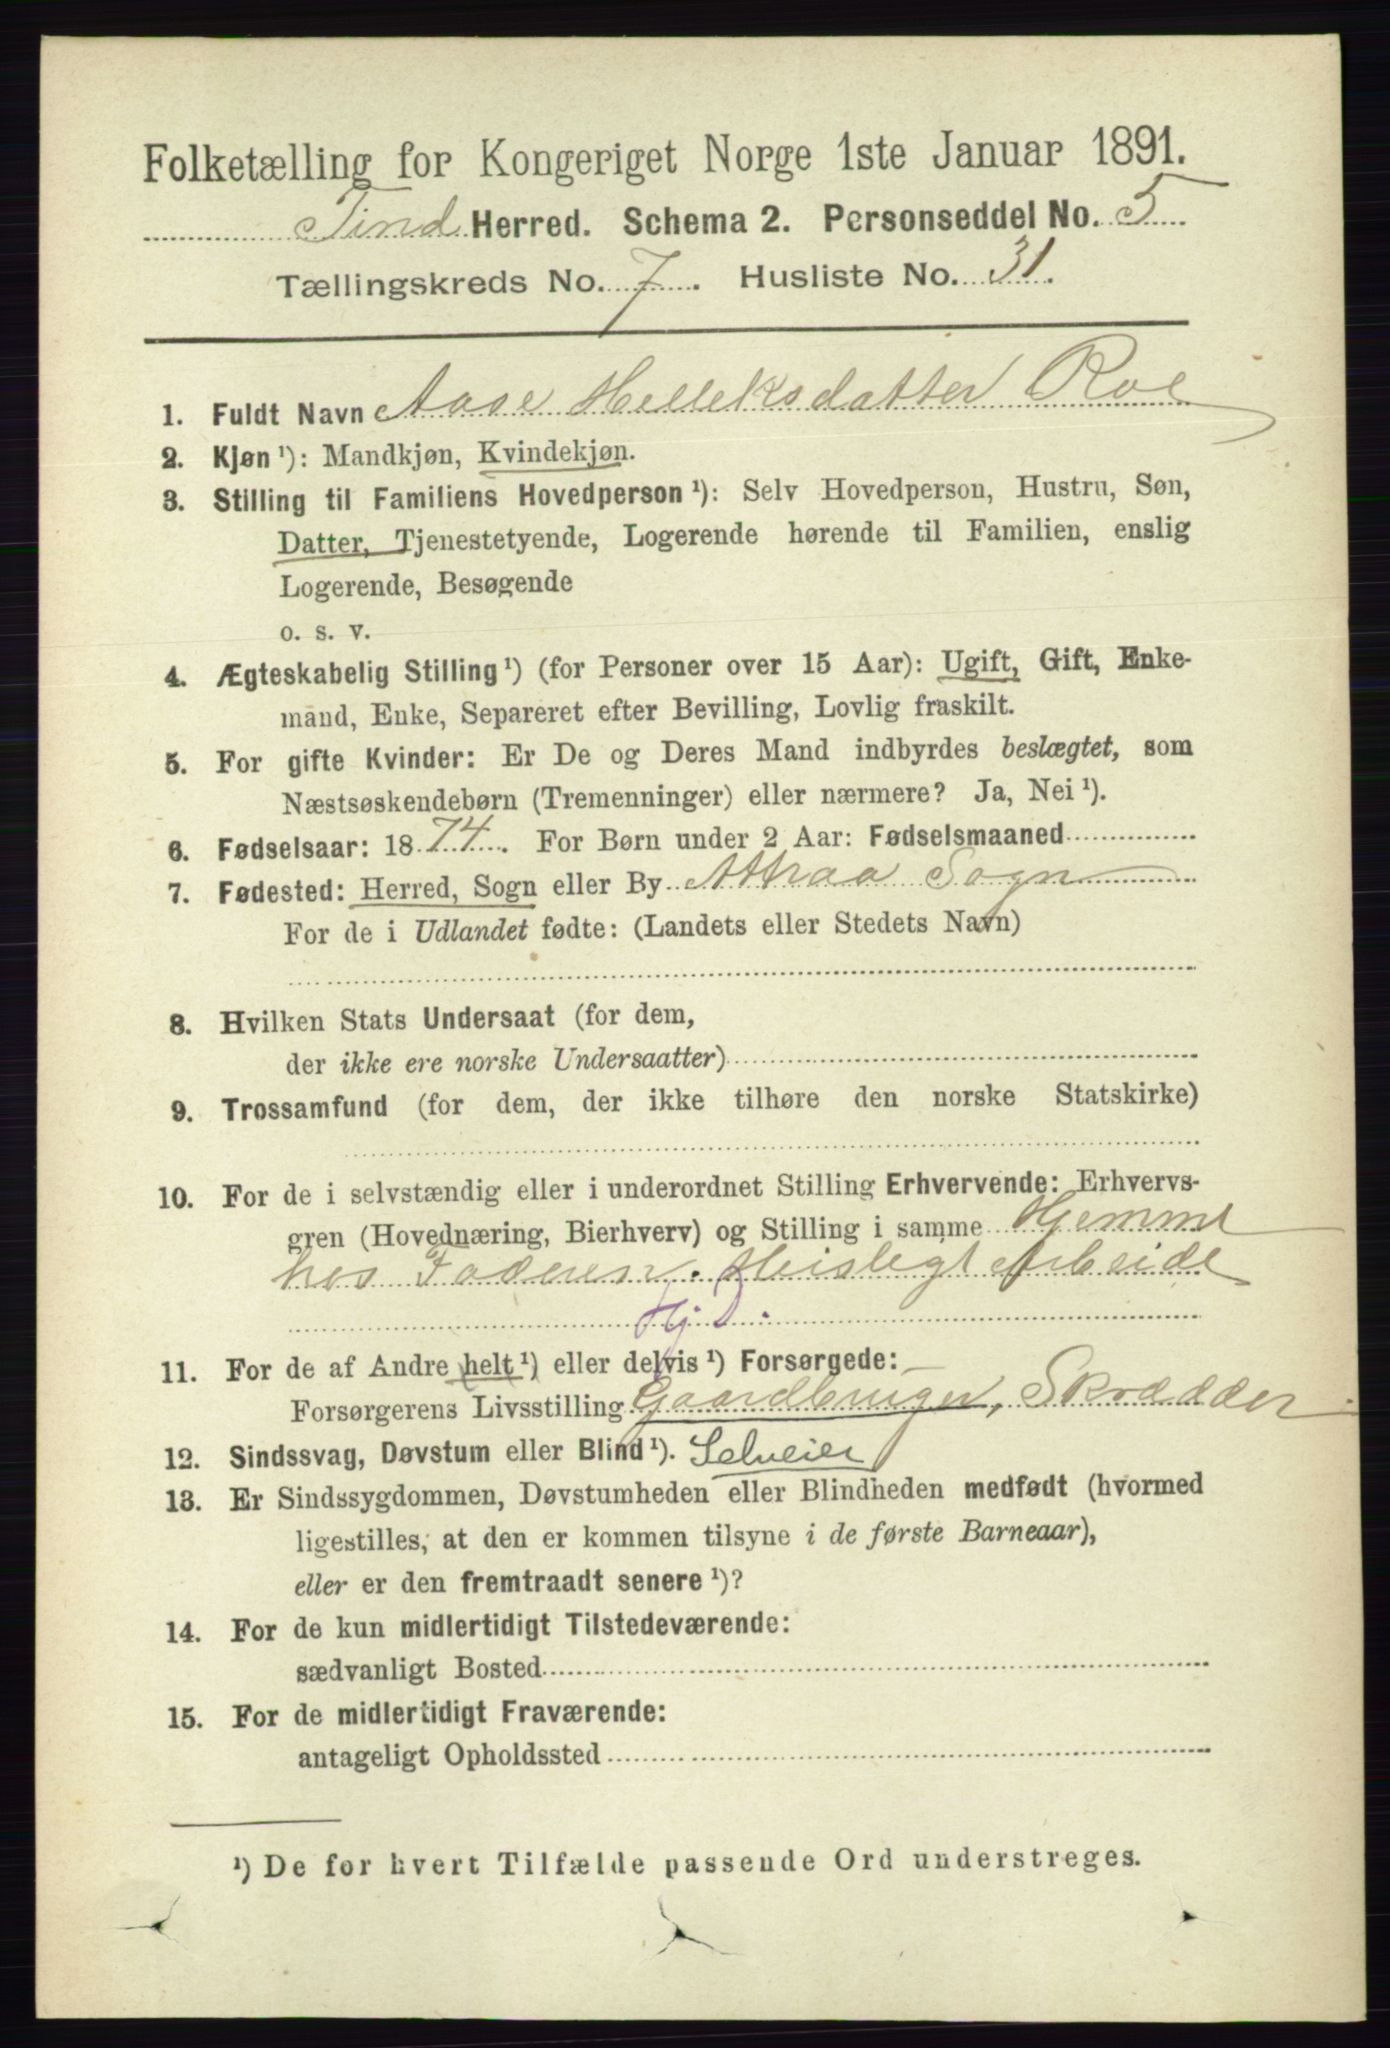 Folketælling for Kongeriget Norge 1ste Januar 1891.
Tind Herred. Schema 2. Personseddel No. 5
Tællingskreds No. 7. Husliste No. 31.
1. Fuldt Navn Aase Helleksdatter Roe
2. Kjøn ¹): Mandkjøn, Kvindekjøn.
3. Stilling til Familiens Hovedperson ¹): Selv Hovedperson, Hustru, Søn,
Datter, Tjenestetyende, Logerende hørende til Familien, enslig
Logerende, Besøgende
o. s. v.
4. Ægteskabelig Stilling ¹) (for Personer over 15 Aar): Ugift, Gift, Enke-
mand, Enke, Separeret efter Bevilling, Lovlig fraskilt.
5. For gifte Kvinder: Er De og Deres Mand indbyrdes beslægtet, som
Næstsøskendebørn (Tremenninger) eller nærmere? Ja, Nei ¹).
6. Fødselsaar: 1874. For Børn under 2 Aar: Fødselsmaaned
7. Fødested: Herred, Sogn eller By Attraa Sogn
For de i Udlandet fødte: (Landets eller Stedets Navn)
8. Hvilken Stats Undersaat (for dem,
der ikke ere norske Undersaatter)
9. Trossamfund (for dem, der ikke tilhøre den norske Statskirke)
10. For de i selvstændig eller i underordnet Stilling Erhvervende: Erhvervs-
gren (Hovednæring, Bierhverv) og Stilling i samme Hjemme
hos Faderen. Heisligt Arbeide
Hj. D.
11. For de af Andre helt ¹) eller delvis ¹) Forsørgede:
Forsørgerens Livsstilling Gaardbruger, Skrædder
12. Sindssvag, Døvstum eller Blind ¹). Selveier
13. Er Sindssygdommen, Døvstumheden eller Blindheden medfødt (hvormed
ligestilles, at den er kommen tilsyne i de første Barneaar),
eller er den fremtraadt senere ¹)?
14. For de kun midlertidigt Tilstedeværende:
sædvanligt Bosted
15. For de midlertidigt Fraværende:
antageligt Opholdssted
¹) De for hvert Tilfælde passende Ord understreges.